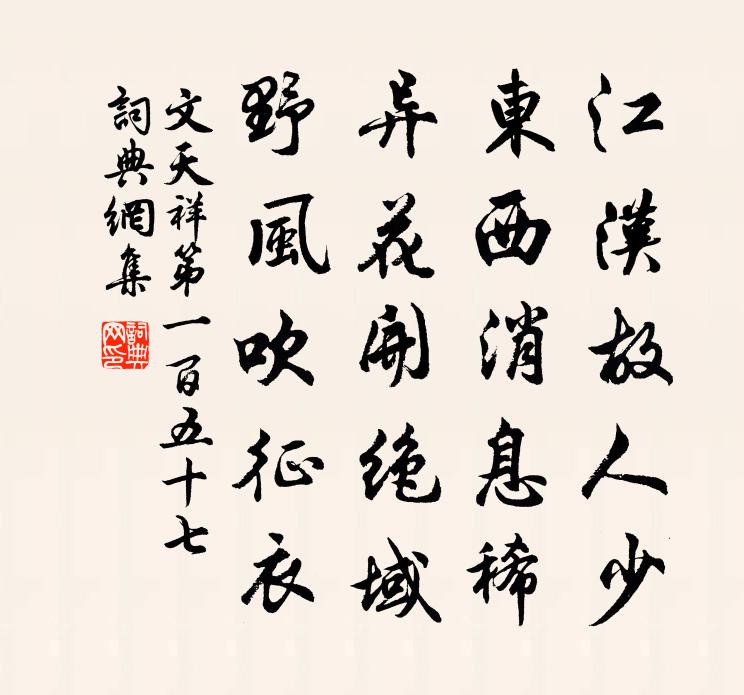 江漢故人少
東西消息稀
异花開絶域
野風吹征衣
文天祥第一百五十七
詞典網集
詞典網印